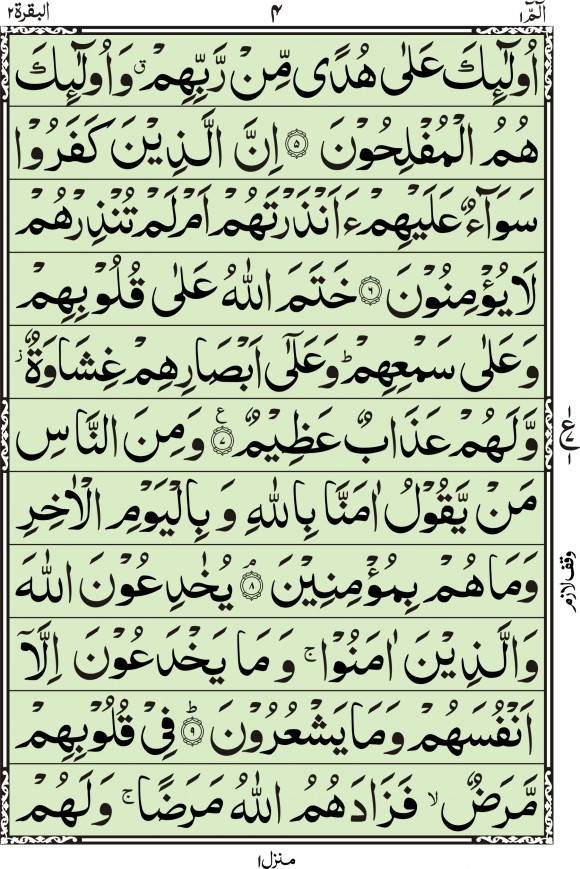 الٓمّٓ ١ ٤ البقرة ٢
اُولٰٓئِكَ عَلٰى هُدًى مِّنْ رَّبِّهِمْ ۗ وَاُولٰٓئِكَ
هُمُ الْمُفْلِحُوْنَ ۝٥ اِنَّ الَّذِيْنَ كَفَرُوْا
سَوَآءٌ عَلَيْهِمْ ءَاَنْذَرْتَهُمْ اَمْ لَمْ تُنْذِرْهُمْ
لَا يُؤْمِنُوْنَ ۝٦ خَتَمَ اللّٰهُ عَلٰى قُلُوْبِهِمْ
وَعَلٰى سَمْعِهِمْ ؕ وَعَلٰٓى اَبْصَارِهِمْ غِشَاوَةٌ ز
وَّلَهُمْ عَذَابٌ عَظِيْمٌ ۝٧ ع وَمِنَ النَّاسِ
مَنْ يَّقُوْلُ اٰمَنَّا بِاللّٰهِ وَبِالْيَوْمِ الْاٰخِرِ
وَمَا هُمْ بِمُؤْمِنِيْنَ ۝٨ۘ يُخٰدِعُوْنَ اللّٰهَ
وَالَّذِيْنَ اٰمَنُوْا ۚ وَمَا يَخْدَعُوْنَ اِلَّآ
اَنْفُسَهُمْ وَمَا يَشْعُرُوْنَ ۝٩ؕ فِيْ قُلُوْبِهِمْ
مَّرَضٌ ۙ فَزَادَهُمُ اللّٰهُ مَرَضًا ۚ وَلَهُمْ
ع
وقف لازم
منزل ١